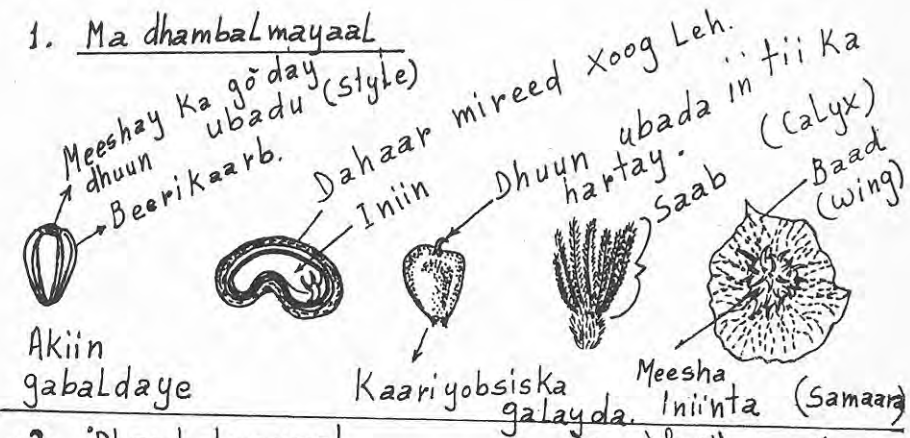 1. Ma dhambalmayaal
Meeshay Ka go'day
dhuun ubadu (Style)
Beerikaarb.
Dahaar mireed xoog Leh.
Iniin
Dhuun ubada in tii Ka
hartay.
Saab (Calyx)
Baad
(wing)
Akiin
gabaldaye
Kaariyobsiska
galayda.
Meesha
Iniinta (Samaara)